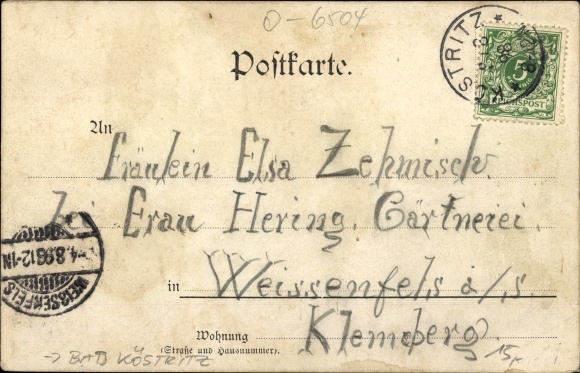 O-6504
KÖSTRITZ
5
REICHSPOST
Postkarte.
An
Fräulein Elsa Zehmisch.
bei Frau Hering, Gärtnerei.
4.8.98 12-1N
WEISSENFELS
in Weissenfels a/s.
Klemberg.
Wohnung
(Straße und Hausnummer)
-> BAD KÖSTRITZ